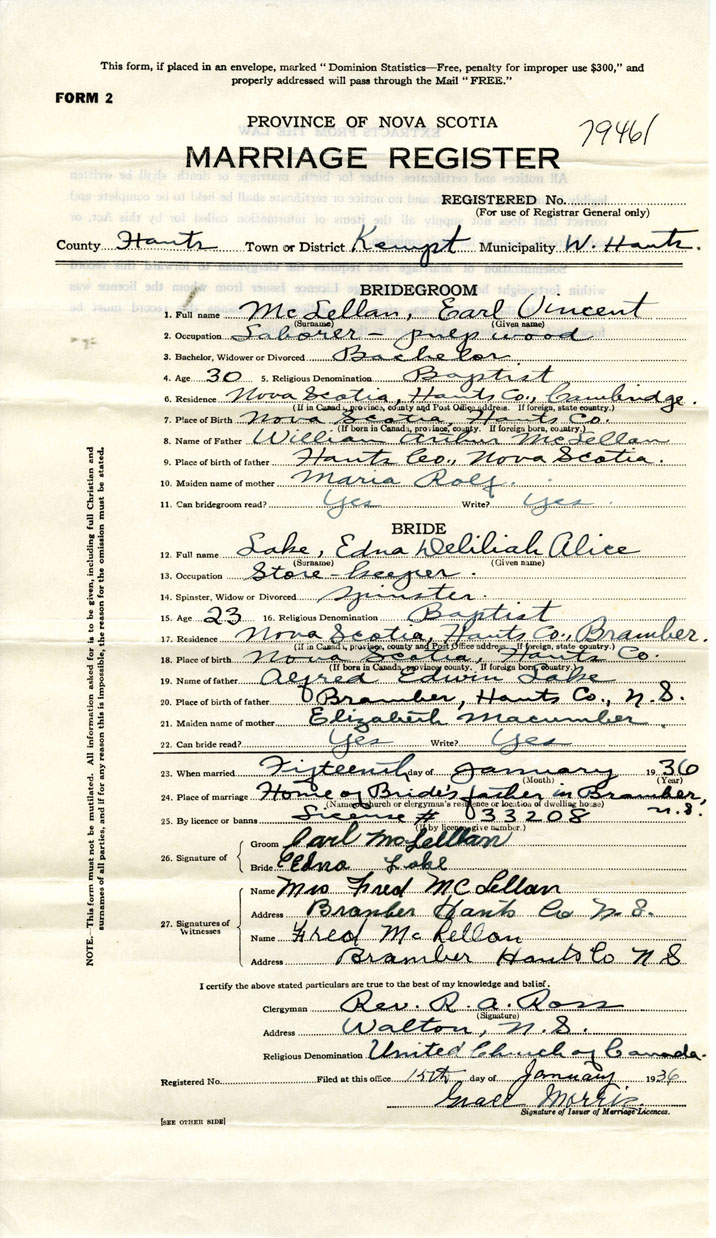 This form, if placed in an envelope, marked "Dominion Statistics—Free, penalty for improper use $300," and
properly addressed will pass through the Mail "FREE."
FORM 2
PROVINCE OF NOVA SCOTIA
79461
MARRIAGE REGISTER
REGISTERED No.
(For use of Registrar General only)
County Hants Town or District Kempt Municipality W. Hants.
BRIDEGROOM
1. Full name McLellan, Earl Vincent
(Surname) (Given name)
2. Occupation Laborer - pulp wood
3. Bachelor, Widower or Divorced Bachelor
4. Age 30 5. Religious Denomination Baptist
6. Residence Nova Scotia, Hants Co., Cambridge.
(If in Canada, province, county and Post Office address. If foreign, state country.)
7. Place of Birth Nova Scotia, Hants Co.
(If born in Canada, province, county. If foreign born, country.)
8. Name of Father William Arthur McLellan
9. Place of birth of father Hants Co., Nova Scotia.
10. Maiden name of mother Maria Rolf.
11. Can bridegroom read? Yes Write? Yes
BRIDE
12. Full name Lake, Edna Deliliah Alice
(Surname) (Given name)
13. Occupation Store-keeper.
14. Spinster, Widow or Divorced Spinster.
15. Age 23 16. Religious Denomination Baptist
17. Residence Nova Scotia, Hants Co., Bramber.
(If in Canada, province, county and Post Office address. If foreign, state country.)
18. Place of birth Nova Scotia, Hants Co.
(If born in Canada, province, county. If foreign born, country.)
19. Name of father Alfred Edwin Lake
20. Place of birth of father Bramber, Hants Co., N.S.
21. Maiden name of mother Elizabeth Macumber
22. Can bride read? Yes Write? Yes
23. When married Fifteenth day of January 1936
(Month) (Year)
24. Place of marriage Home of Bride's father in Bramber,
(Name of church or clergyman's residence or location of dwelling house) N.S.
25. By licence or banns License # 33208
(If by licence, give number.)
26. Signature of Groom Earl McLellan
Bride Edna Lake
27. Signatures of Witnesses Name Mrs Fred McLellan
Address Bramber Hants Co N.S.
Name Fred McLellan
Address Bramber Hants Co N S
I certify the above stated particulars are true to the best of my knowledge and belief.
Clergyman Rev. R. A. Ross
(Signature)
Address Walton, N.S.
Religious Denomination United Church of Canada.
Registered No. Filed at this office 15th day of January 1936
Grace Morris.
Signature of Issuer of Marriage Licences.
[SEE OTHER SIDE]
NOTE. This form must not be mutilated. All information asked for is to be given, including full Christian and
surnames of all parties, and if for any reason this is impossible, the reason for the omission must be stated.